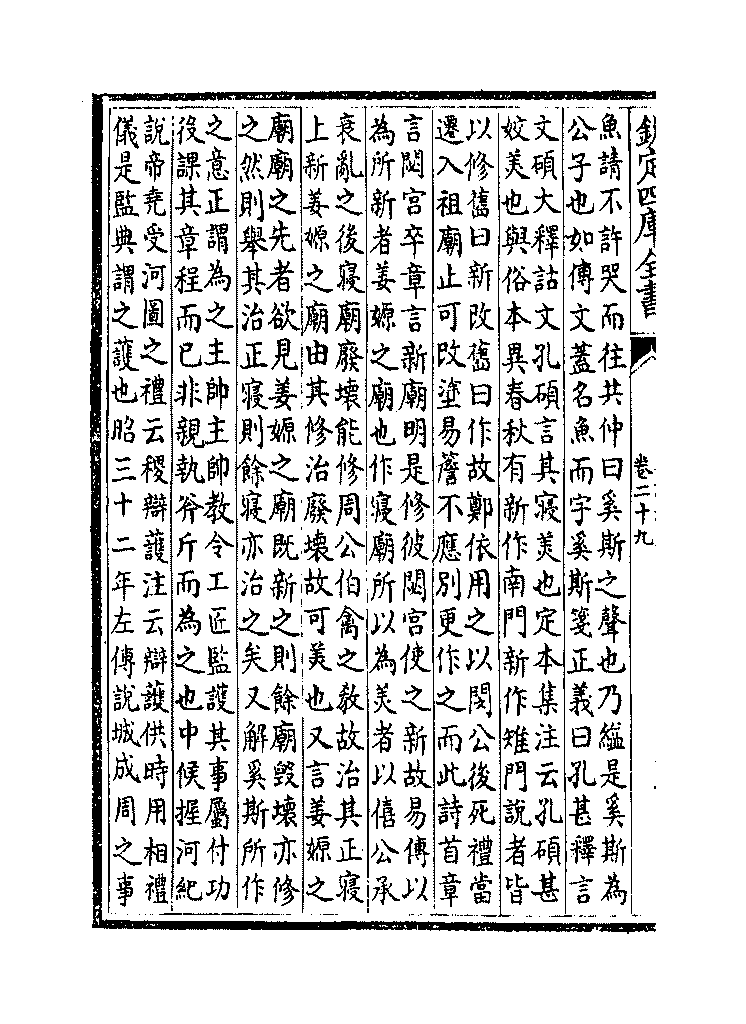 欽定四庫全書
卷二十九
魚請不許哭而往共仲曰奚斯之聲也乃縊是奚斯為
公子也如傳文蓋名魚而字奚斯箋正義曰孔甚釋言
文碩大釋詁文孔碩言其寢美也定本集注云孔碩甚
姣美也與俗本異春秋有新作南門新作雉門說者皆
以修舊曰新改舊曰作故鄭依用之以閔公後死禮當
遷入祖廟止可改塗易簷不應別更作之而此詩首章
言閟宫卒章言新廟明是修彼閟宫使之新故易傳以
為所新者姜嫄之廟也作寢廟所以為美者以僖公承
衰亂之後寢廟廢壊能修周公伯禽之敎故治其正寢
上新姜嫄之廟由其修治廢壊故可美也又言姜嫄之
廟廟之先者欲見姜嫄之廟既新之則餘廟毁壊亦修
之然則舉其治正寢則餘寢亦治之矣又解奚斯所作
之意正謂為之主帥主帥教令工匠監護其事屬付功
役課其章程而已非親執斧斤而為之也中候握河紀
說帝堯受河圖之禮云稷辯護注云辯護供時用相禮
儀是監典謂之護也昭三十二年左傳說城成周之事